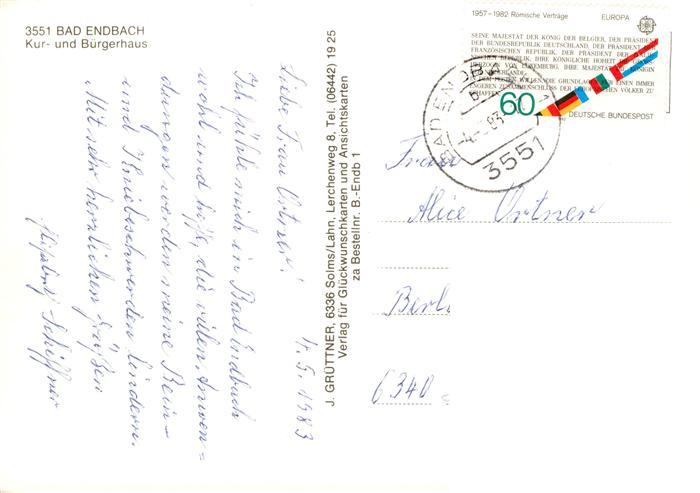 3551 BAD ENDBACH
Kur- und Bürgerhaus
4. 5. 1983
Liebe Frau Ortner!
Ich fühle mich in Bad Endbach
wohl und hoffe, die vielen Anwen=
dungen werden meine Bein-
und Kniebeschwerden lindern.
Mit sehr herzlichen Grüßen
Schiffner
J. GRÜTTNER, 6336 Solms/Lahn, Lerchenweg 8, Tel. (06442) 19 25
Verlag für Glückwunschkarten und Ansichtskarten
za Bestellnr. B.-Endb 1
1957–1982 Römische Verträge EUROPA
SEINE MAJESTÄT DER KÖNIG DER BELGIER, DER PRÄSIDENT
DER BUNDESREPUBLIK DEUTSCHLAND, DER PRÄSIDENT DER
FRANZÖSISCHEN REPUBLIK, DER PRÄSIDENT
REPUBLIK, IHRE KÖNIGLICHE HOHEIT DIE
HERZOGIN VON LUXEMBURG, IHRE MAJESTÄT KÖNIGIN
DIE GRUNDLAGEN FÜR EINEN IMMER
ENGEREN ZUSAMMENSCHLUSS DER EUROPÄISCHEN VÖLKER ZU
SCHAFFEN
60
DEUTSCHE BUNDESPOST
BAD ENDBACH
-4.-5.83
3551
Frau
Alice Ortner
Berl
6340